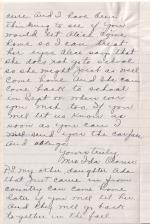 sure And I have been
thinking to see if you
would let Alice come
home so I can treat
her eyes Alice say that
she does not go to school
so she might just as well
come home And she can
come back to school
in Sept or when ever
you wish too. If you
will let us know as
soon as you can I
will send you the carfare
And oblige
Yours truly
Mrs Ida
P.S. my other daughter Ada
that just came in from
country can come home
later if you will let her
And they will go back
together in the fall